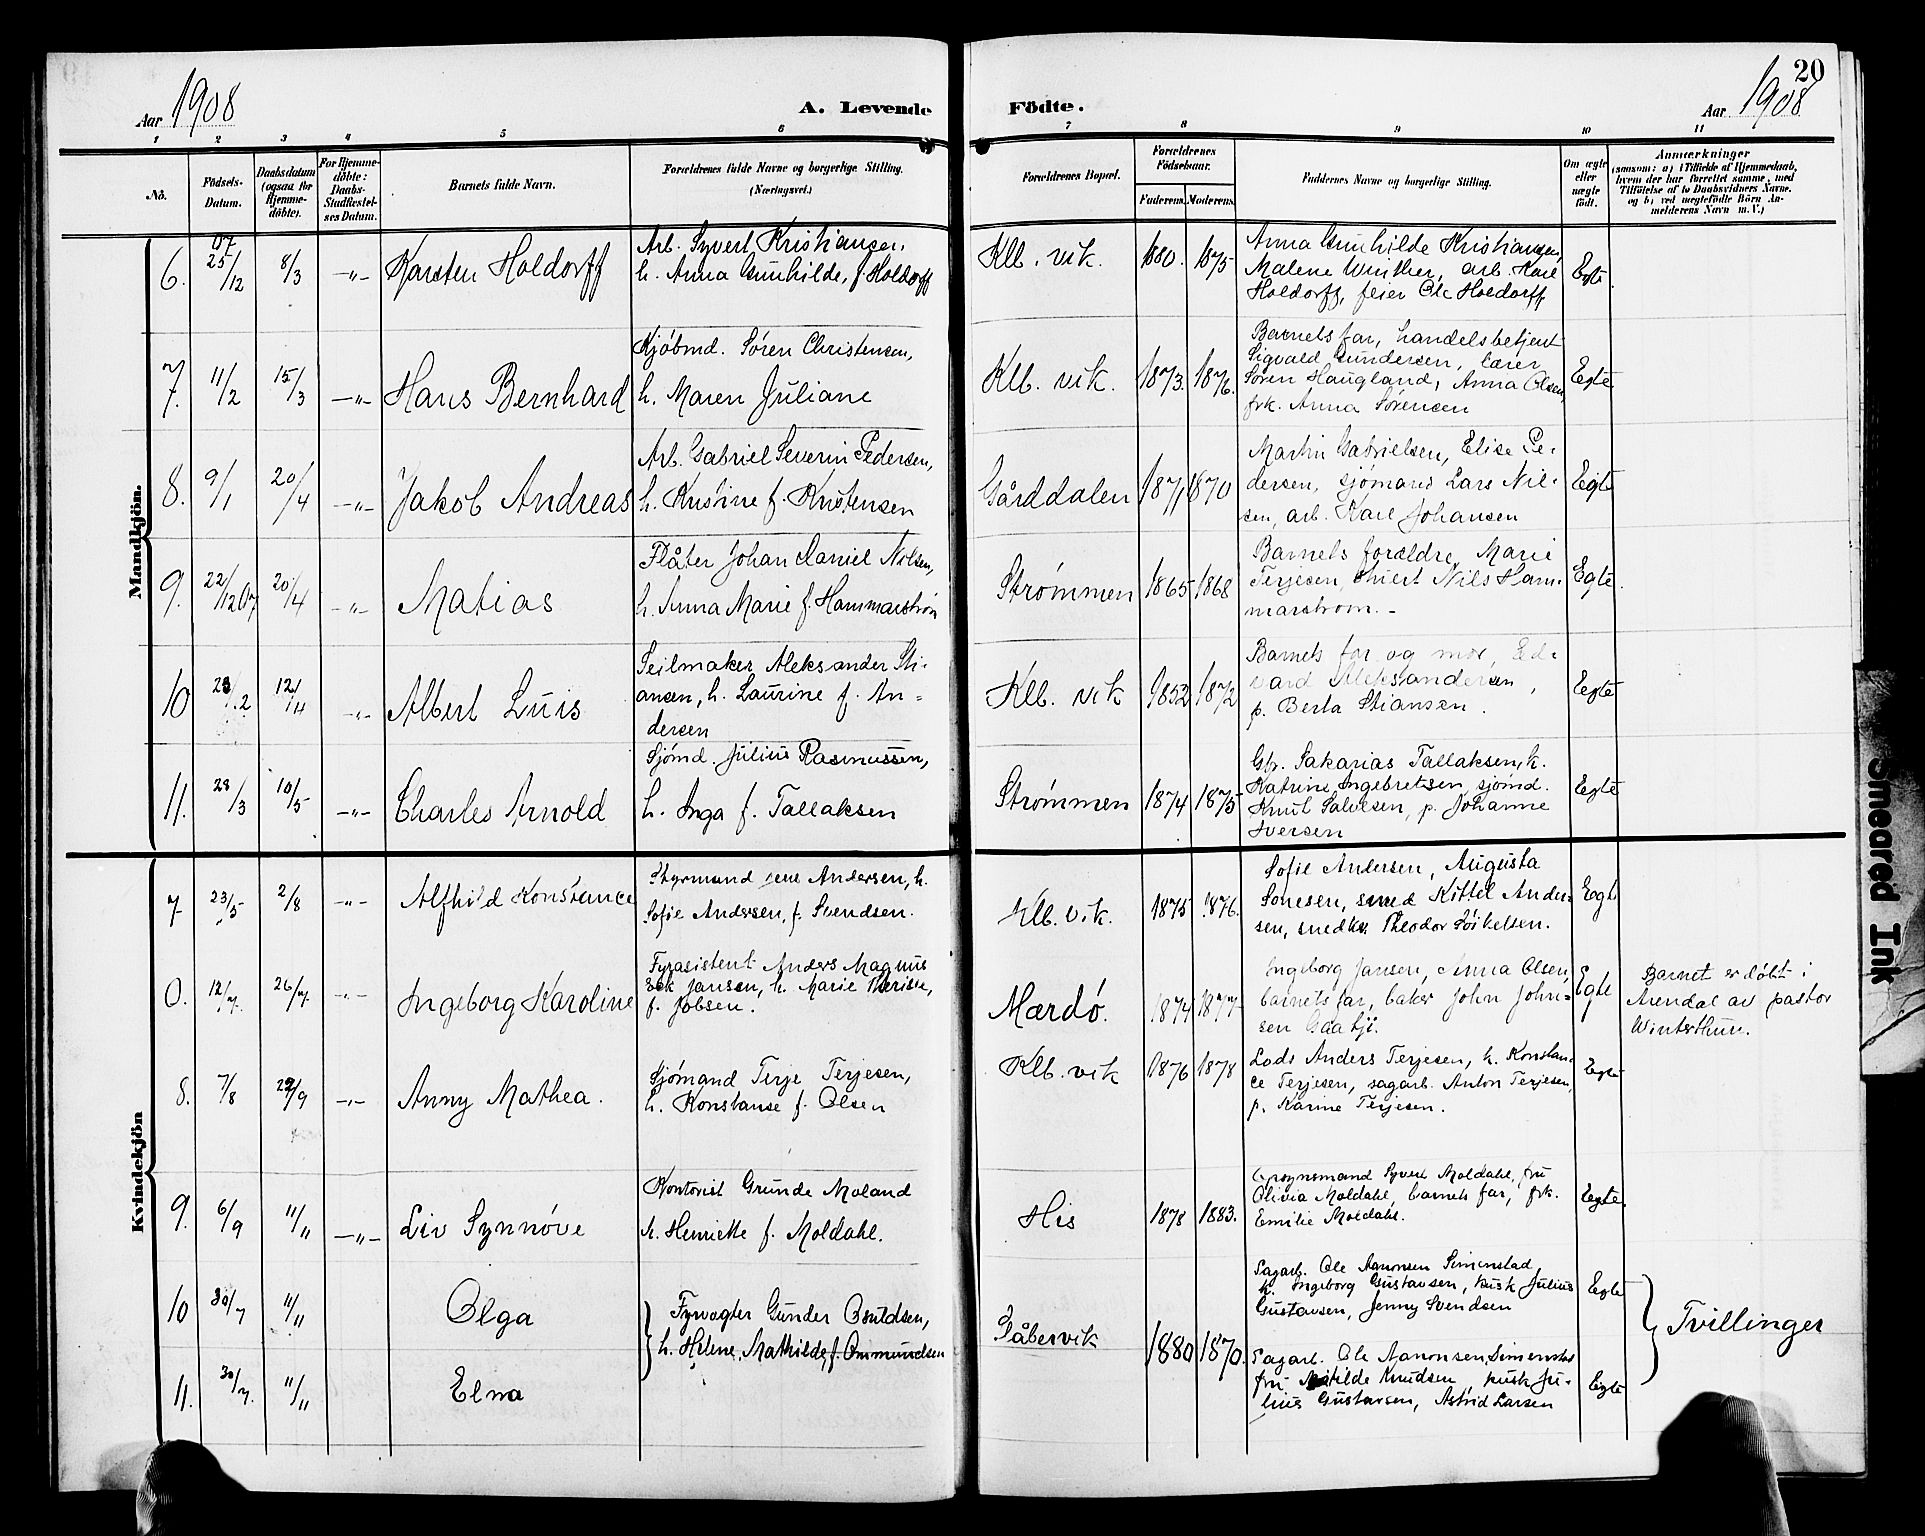 Aar 1908
A. Levende
Födte.
Aar 1908
20
1 2 3 4 5 6 7 8 9 10 11
Nö.
Födsels-Datum.
Daabsdatum (ogsaa for Hjemmedöbte).
For Hjemmedöbte: Daabs-Stadfæstelses Datum.
Barnets fulde Navn.
Forældrenes fulde Navne og borgerlige Stilling. (Næringsvei.)
Forældrenes Bopæl.
Forældrenes Födselsaar.
Faderens. Moderens.
Faddernes Navne og borgerlige Stilling.
Om ægte eller uægte födt.
Anmærkninger
(saasom: a) i Tilfælde af Hjemmedaab, hvem der har forrettet samme, med Tilföielse af to Daabsvidners Navne. og b) ved uægtefödte Börn Anmelderens Navn m. V.)
Mandkjön.
6. 07 25/12 8/3 -"- Karsten Holdorff
Arb. Syvert Kristiansen,
h. Anna Gunhilde, f. Holdorff
Klb. vik. 1880. 1875
Anna Gunhilde Kristiansen,
Malene Winther, arb. Karl
Holdorff, feier Ole Holdorff
Egte
7. 11/2 15/3 -"- Hans Bernhard
Kjøbmd. Søren Christensen,
h. Maren Juliane
Klb. vik. 1873. 1876.
Barnets far, handelsbetjent
Sigvald Gundersen, lærer
Søren Haugland, Anna Olsen,
frk. Anna Sørensen
Egte
8. 9/1 20/4 -"- Jakob Andreas
Arb. Gabriel Severin Pedersen,
h. Kristine f. Kristensen
Gårddalen 1871 1870
Martin Gabrielsen, Elise Pe-
dersen, sjømand Lars Nil-
sen, arb. Karl Johansen
Egte
9. 22/12 07 20/4 -"- Matias
Flåter Johan Daniel Nilsen,
h. Anna Marie f. Hammarstrøm
Strømmen 1865 1868
Barnets forældre, Marie
Terjesen, Nils Ham-
marstrøm. -
Egte.
10 28/2 12/4 -"- Albert Luis
Seilmaker Aleksander Sti-
ansen, h. Laurine f. An-
dersen
Klb. vik 1852 1872
Barnets far og mor, Ed-
vard Aleksandersen,
p. Berta Stiansen.
Egte
11. 28/3 10/5 -"- Charles Arnold
Sjømd. Julius Rasmussen,
h. Inga f. Tallaksen
Strømmen 1874 1875
Gbr. Sakarias Tallaksen, k.
Katrine Ingebretsen, sjømd.
Knut Salvesen, p. Johanne
Iversen
Egte
Kvindekjön
7 23/5 2/8 -"- Alfhild Konstance
Styrmand Jens Andersen, h.
Sofie Andersen, f. Svendsen.
Klb. vik. 1875 1876.
Sofie Andersen, Augusta
Sonesen, smed Kittel Ander-
sen, snedker Theodor
Egte
0. 12/7. 26/7 -"- Ingeborg Karoline
Fyrasistent Anders Magnus
Eek Jansen, h. Marie Therise,
f. Jobsen.
Mærdø. 1874 1877
Ingeborg Jansen, Anna Olsen,
barnets far, baker John John-
sen
Egte
Barnet er døbt i
Arendal av pastor
Winterthun.
8. 7/8 29/9 -"- Anny Mathea.
Sjømand Terje Terjesen,
h. Konstanse f. Olsen
Klb. vik 1876 1878
Lods Anders Terjesen, h. Konstan-
ce Terjesen, sagarb. Anton Terjesen,
p. Karine Terjesen.
Egte
9. 6/9 11/11 -"- Liv Synnøve
Kontorist Grunde Moland
h. Henriette f. Moldahl.
His 1878 1883.
Opsynsmand Syvert Moldahl, fru
Olivia Moldahl, barnets far, frk.
Emilie Moldahl.
Egte.
10 30/7 11/11 Olga
Fyrvogter Gunder Osuldsen,
h. Helene Mathilde, f. Ommundsen
Såbervik 1880 1870.
Sagarb. Ole Aanonsen Simenstad,
k. Ingeborg Gustavsen, kusk Julius
Gustavsen, Jenny Svendsen
Egte
Tvillinger
11. 30/7. 11/11 Elna
Sagarb. Ole Aanonsen Simenstad
fru Matilde Knudsen, kusk Ju-
lius Gustavsen, Astrid Larsen
Egte
Smeared Ink